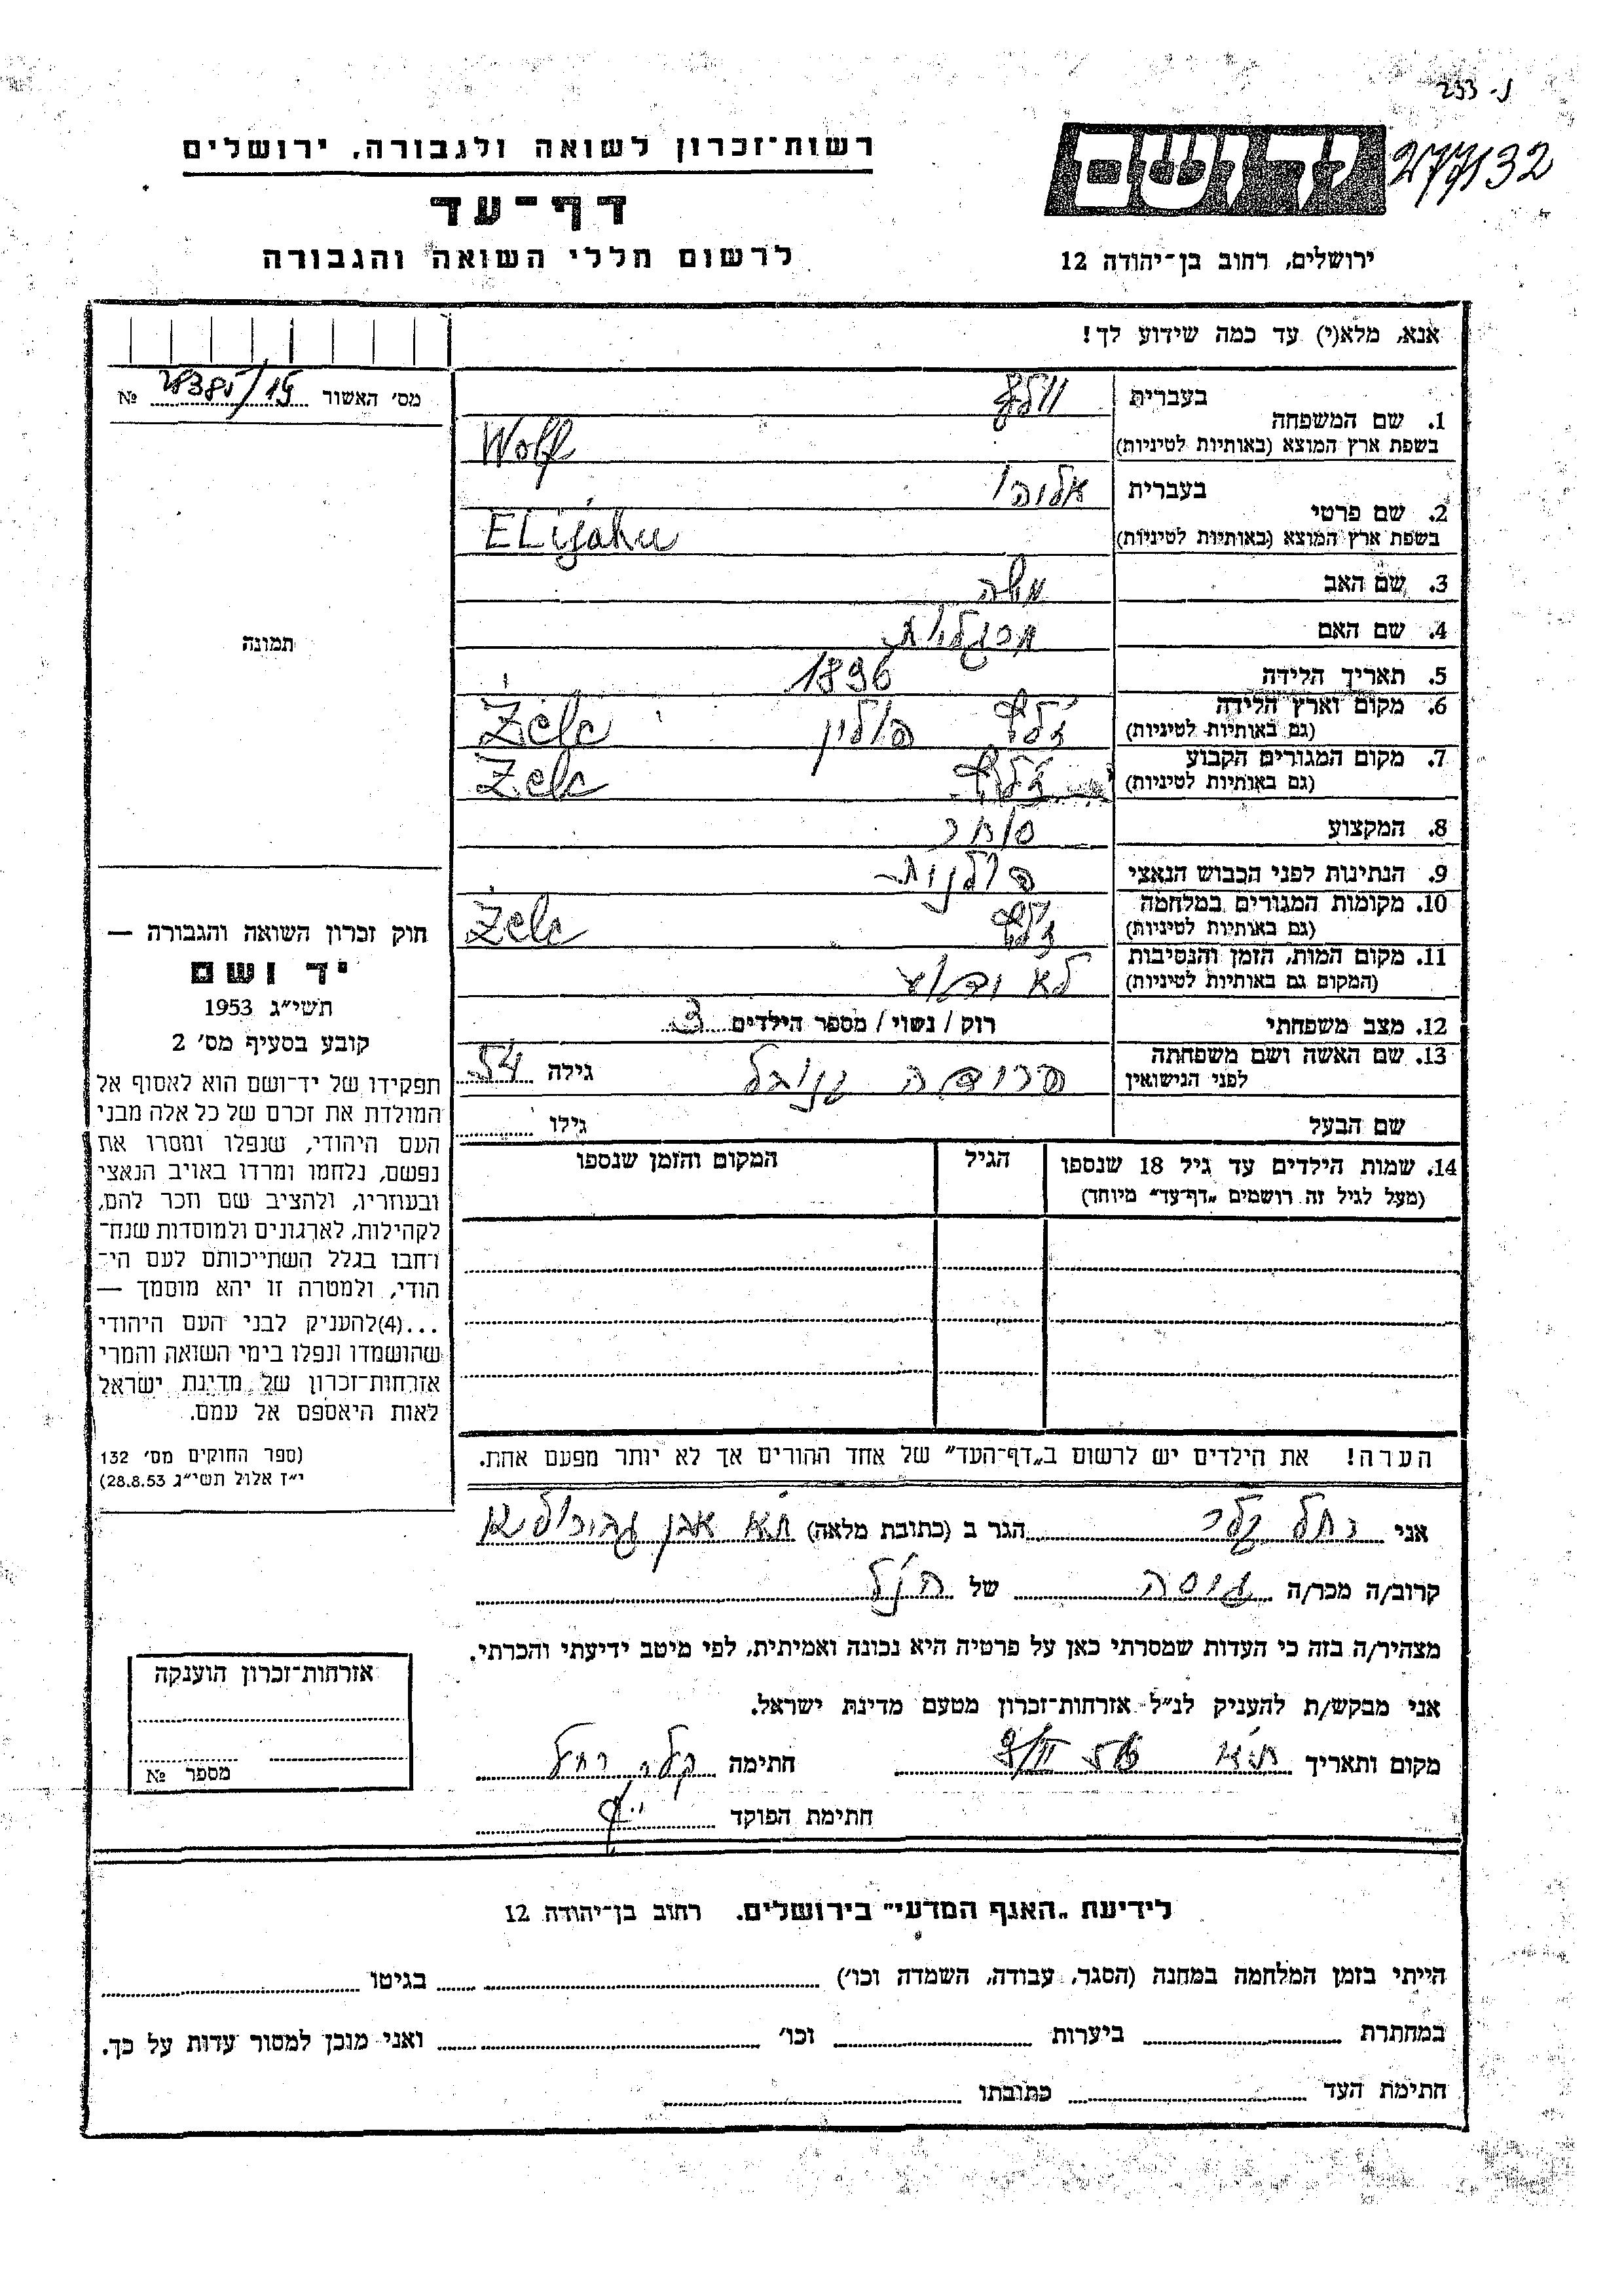 233 - נ
רשות־זכרון לשואה ולגבורה, ירושלים
277132
דף־עד
לרשום חללי השואה והגבורה
ירושלים, רחוב בן־יהודה 12
אנא, מלא(י) עד כמה שידוע לך!
מס׳ האשור №
1. שם המשפחה
בעברית וולף
בשפת ארץ המוצא (באותיות לטיניות) Wolf
2. שם פרטי
בעברית אליהו
בשפת ארץ המוצא (באותיות לטיניות) ELijahu
3. שם האב משה
4. שם האם מרגלית
5. תאריך הלידה 1896
6. מקום וארץ הלידה
(גם באותיות לטיניות) פולין
7. מקום המגורים הקבוע
(גם באותיות לטיניות)
8. המקצוע סוחר
9. הנתינות לפני הכבוש הנאצי פולנית
10. מקומות המגורים במלחמה
(גם באותיות לטיניות)
11. מקום המות, הזמן והנסיבות
(המקום גם באותיות לטיניות) לא ידוע
12. מצב משפחתי רוק / נשוי / מספר הילדים 3
13. שם האשה ושם משפחתה
לפני הנישואין גילה
שם הבעל גילו
14. שמות הילדים עד גיל 18 שנספו הגיל המקום והזמן שנספו
(מעל לגיל זה רושמים „דף־עד״ מיוחד)
תמונה
חוק זכרון השואה והגבורה —
יד ושם
תשי״ג 1953
קובע בסעיף מס׳ 2
תפקידו של יד־ושם הוא לאסוף אל
המולדת את זכרם של כל אלה מבני
העם היהודי, שנפלו ומסרו את
נפשם, נלחמו ומרדו באויב הנאצי
ובעוזריו, ולהציב שם וזכר להם,
לקהילות, לארגונים ולמוסדות שנח־
רחבו בגלל השתייכותם לעם הי־
הודי, ולמטרה זו יהא מוסמך —
...(4)להעניק לבני העם היהודי
שהושמדו ונפלו בימי השואה והמרי
אזרחות־זכרון של מדינת ישראל
לאות היאספם אל עמם.
(ספר החוקים מס׳ 132
י״ז אלול תשי״ג 28.8.53)
הערה! את הילדים יש לרשום ב„דף־העד״ של אחד ההורים אך לא יותר מפעם אחת.
אני רחל קלר הגר ב (כתובת מלאה) ת״א אבן גבירול
קרוב/ה מכר/ה גיסה של הנ״ל
מצהיר/ה בזה כי העדות שמסרתי כאן על פרטיה היא נכונה ואמיתית, לפי מיטב ידיעתי והכרתי.
אני מבקש/ת להעניק לנ״ל אזרחות־זכרון מטעם מדינת ישראל.
מקום ותאריך ת״א חתימה קלר רחל
חתימת הפוקד
אזרחות־זכרון הוענקה
מספר №
לידיעת „האגף המדעי״ בירושלים. רחוב בן־יהודה 12
הייתי בזמן המלחמה במחנה (הסגר, עבודה, השמדה וכו׳) בגיטו
במחתרת ביערות וכו׳ ואני מוכן למסור עדות על כך.
חתימת העד כתובתו